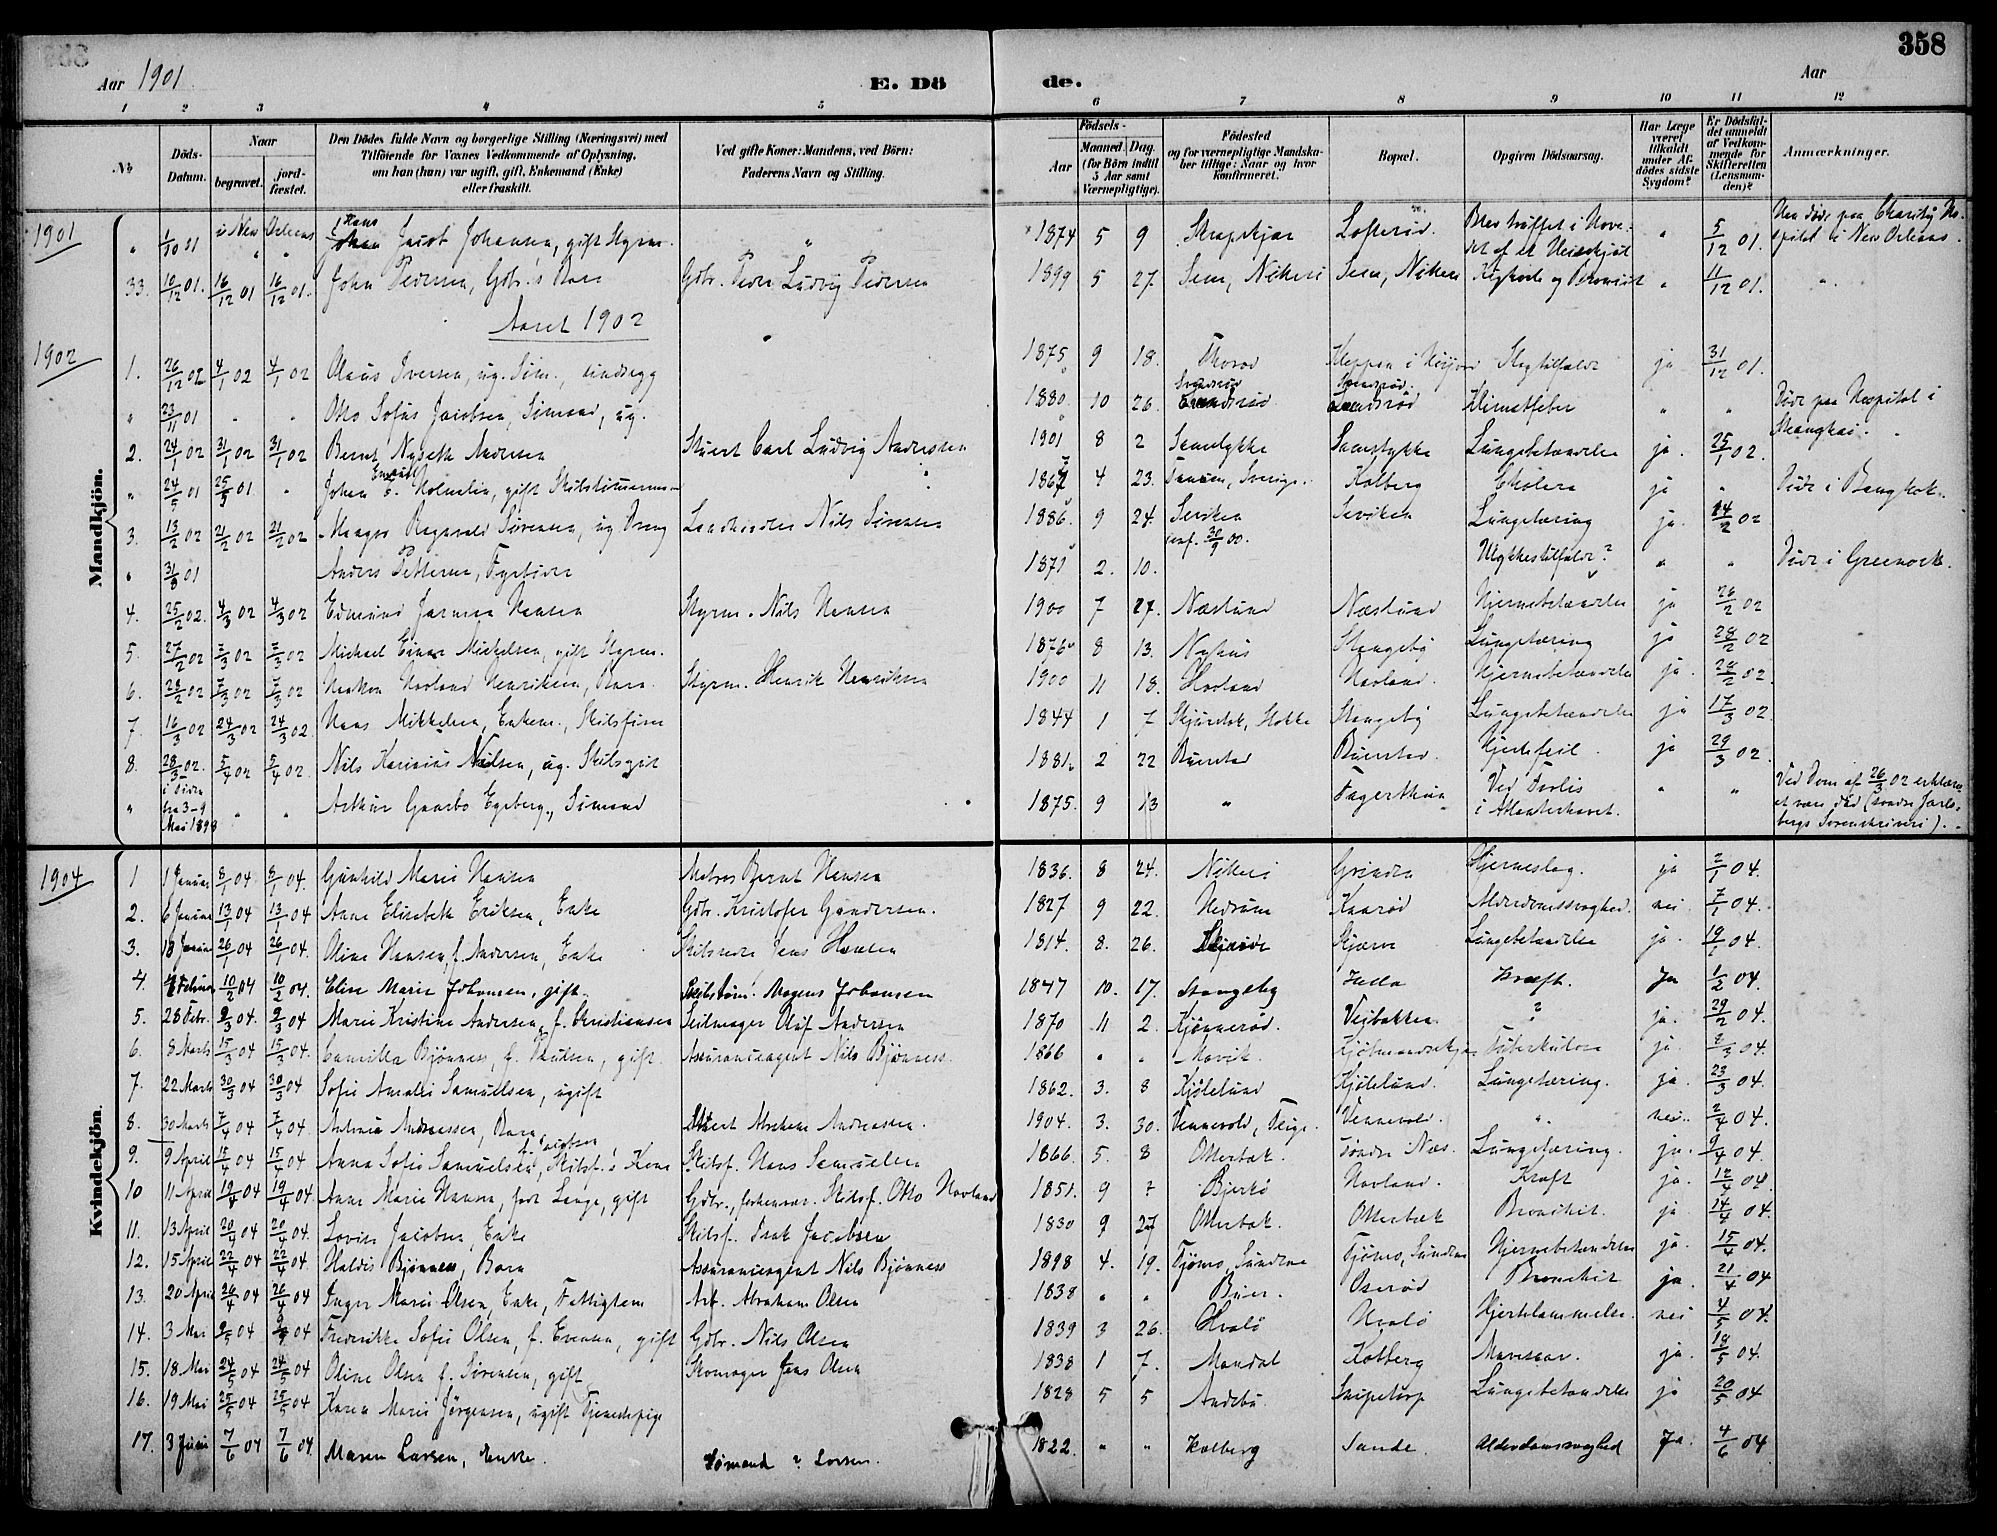 358
Aar 1901 E. Dö de. Aar
1 2 3 4 5 6 7 8 9 10 11 12
№
Döds-Datum.
Naar
begravet.
jord-fæstet.
Den Dödes fulde Navn og borgerlige Stilling (Næringsvei) med
Tilföiende for Voxnes Vedkommende af Oplysning,
om han (hun) var ugift, gift, Enkemand (Enke)
eller fraskilt.
Ved gifte Koner: Mandens, ved Börn:
Faderens Navn og Stilling.
Födsels-
Aar
Maaned. Dag.
(for Börn indtil
5 Aar samt
Værnepligtige).
Födested
og for værnepligtige Mandska-
ber tillige: Naar og hvor
Konfirmeret.
Bopæl.
Opgiven Dödsaarsag.
Har Læge
været
tilkaldt
under Af-
dödes sidste
Sygdom?
Er Dödsfal-
det anmeldt
af Vedkom-
mende for
Skifteretten
(Lensman-
den)?
Anmærkninger.
Mandkjön.
1901 " 1/10 01 i New Orleans Hans Jacob Johansen, gift Styrm. " 1874 5 9 Lofterød. Blev truffet i Hove- " 5/12 01. Han døde paa Charity Ho-
det af et spital i New Orleans.
33. 10/12 01. 16/12 01 16/12 01. John Pedersen, Gdbr.'s Barn Gdbr. Peder Ludvig Pedersen 1899 5 27. Sem, Nøtterø Sem, Nøtterø Kighoste og " 11/12 01. "
Aaret 1902
1902 1. 26/12 02 4/1 02 4/1 02 Olaus Iversen, ug. Søm., 1875 9 18. Thorød Slagtilfælde ja 31/12 01.
" 23/11 01 " " Otto Sofus Jacobsen, Sømand, ug. 1880 10 26. Klimatfeber " " Døde paa Hospital i
Shanghai.
2. 24/1 02 31/1 02 31/1 02 Bernt Andersen Stuert Carl Ludvig Anderssen 1901 8 2 Lungebetændelse ja. 25/1 02.
" 24/5 01 25/5 01 " Johan Emanuel gift 4 23. Sverige. Kolberg Cholera ja " Døde i Bangkok.
3. 13/2 02 21/2 02 21/2 02 Ragnvald Sørensen, ug Dreng Landhandler Nils Sørensen 1886. 9 24. Lungetæring ja. 14/2 02
conf. 30/9 00.
" 31/8 01 Anders Pettersen, Fyrbøder 1871 2. 10. Ulykkestilfælde? " " Døde i Greenock.
4. 25/2 02. 4/3 02 4/3 02 Edmund Hansen Styrm. Nils Hansen 1900 7 27. Næslund Næslund Hjernebetændelse ja 26/2 02
5. 27/2 02 7/3 02 7/3 02 Michael Einar Mickelsen, gift Styrm. 1876 8 13. Nyhus Stangeby Lungetæring ja 28/2 02
6. 28/2 02 7/3 02 7/3 02 Haakon Havland Henriksen, Barn. Styrm. Henrik Henriksen 1900 11 18. Hovland Havland. Hjernebetændelse ja. 28/2 02.
7. 16/3 02 24/3 02 24/3 02. Hans Mikkelsen, Enkem., Skibsfører 1844 1 7 Stokke Stangeby Lungebetændelse ja 17/3 02.
8. 28/3 02. 5/4 02 5/4 02. Nils Karinius Nilsen, ug. Skibsgut 1881 2 22 Buerstad Buerstad Hjertefeil. ja 29/3 02.
" i Tiden " " Arthur Egeberg, Sømand 1875. 9 13 " Ved Forlis " " Ved Dom af 26/3 02 erklæret
fra 3-9 i Atlanterhavet. at være død (søndre Jarls-
Mai 1898 bergs Sorenskriveri).
Kvindekjön.
1904 1 1 Januar 8/1 04 8/1 04. Gunhild Marie Hansen Matros Bernt Hansen 1836. 8 24. Nøtterø Grindra Hjerneslag. ja 2/1 04.
2. 6 Januar 13/1 04 13/1 04 Anne Elisabeth Eriksen, Enke Gdbr. Kristofer Gundersen. 1827 9 22. Hedrum Kaarød Alderdomssvaghed. nei 7/1 04.
3. 18 Januar 26/1 04 26/1 04. Oline Hansen, f. Andersen, Enke Jens Hansen 1814. 8. 26. Skjærve Lungebetændelse ja. 19/1 04.
4. Februar 10/2 04 10/2 04. Elise Marie Johansen, gift Skibstøm. Mogens Johansen 1847 10. 17. Stangeby Hella Kræft. Ja 1/2 04.
5. 28 Febr. 9/3 04 9/3 04 Marie Kristine Andersen, f. Christiansen Seilmager Oluf Andersen 1870 11 2. Kjønnerød. Veibakken. ? ja. 29/2 04.
6. 8 Marts 15/3 04 15/3 04. Camilla Bjønness, f. Paulsen, gift Assuranceagent Nils Bjønness. 1866 " " Mavik. Tuberkulose ja. 04.
7. 22 Marts 30/3 04 30/3 04 Sofie Amalie Samuelsen, ugift 1862. 3. 8 Kjølelund Kjølelund. Lungetæring. ja. 23/3 04.
8. 30 Marts 7/4 04 7/4 04. Antonia Andreassen, Barn Stuert Abraham Andreassen. 1904. 3. 30. Vennevold, Teige. Vennevold. " nei. 2/4 04.
9. 9 April 15/4 04 15/4 04 Anna Sofie Samuelsen f. Jacobsen, Skibsf.'s Kone Skibsf. Hans Samuelsen 1866. 5. 8 Otterbæk. Søndre Næs. Lungetæring. ja. 9/4 04.
10 11 April 19/4 04 19/4 04 Anne Marie Hansen, født Lange, gift Gdbr., forhenvær. Skibsf. Otto Havland 1851. 9 7 Bjerkø Havland. Kræft ja. 12/4 04.
11. 13 April 20/4 04 20/4 04. Lovise Jacobsen, Enke Skibsf. Isak Jacobsen 1830 9 27 Otterbæk. Otterbæk Bronchit. ja 14/4 04.
12. 15 April 22/4 04 22/4 04. Haldis Bjønness, Barn Assuranceagent Nils Bjønness 1898 4. 19. Tjømø, Sundene Tjømø, Sundene Hjernebetændelse ja. 15/4 04.
13. 20 April 26/4 04 26/4 04 Inger Marie Olsen, Enke, Fattiglem Arb. Abraham Olsen 1838 " " Buer. Oserød Bronchit ja. 21/4 04
14. 3 Mai 9/5 04 9/5 04 Fredrikke Sofie Olsen, f. Evensen, gift Gdbr. Nils Olsen 1839 3 26. Hvalø Hvalø Hjertelammelse. nei 4/5 04.
15. 18 Mai 24/5 04 24/5 04 Oline Olsen f. Sørensen, gift Skomager Jens Olsen 1838 1 7. Mandal Kolberg Mavesaar. ja. 18/5 04.
16. 19 Mai 25/5 04 25/5 04 Karen Marie Jørgensen, ugift Tjenestepige 1828 5 5 Andebu Snipetorp Lungebetændelse ja 20/5 04
17. 3 Juni 7/6 04 7/6 04. Maren Larsen, Enke. Sømand ? Larsen. 1822. " " Kolberg Sande. Alderdomssvaghed Ja. 4/6 04